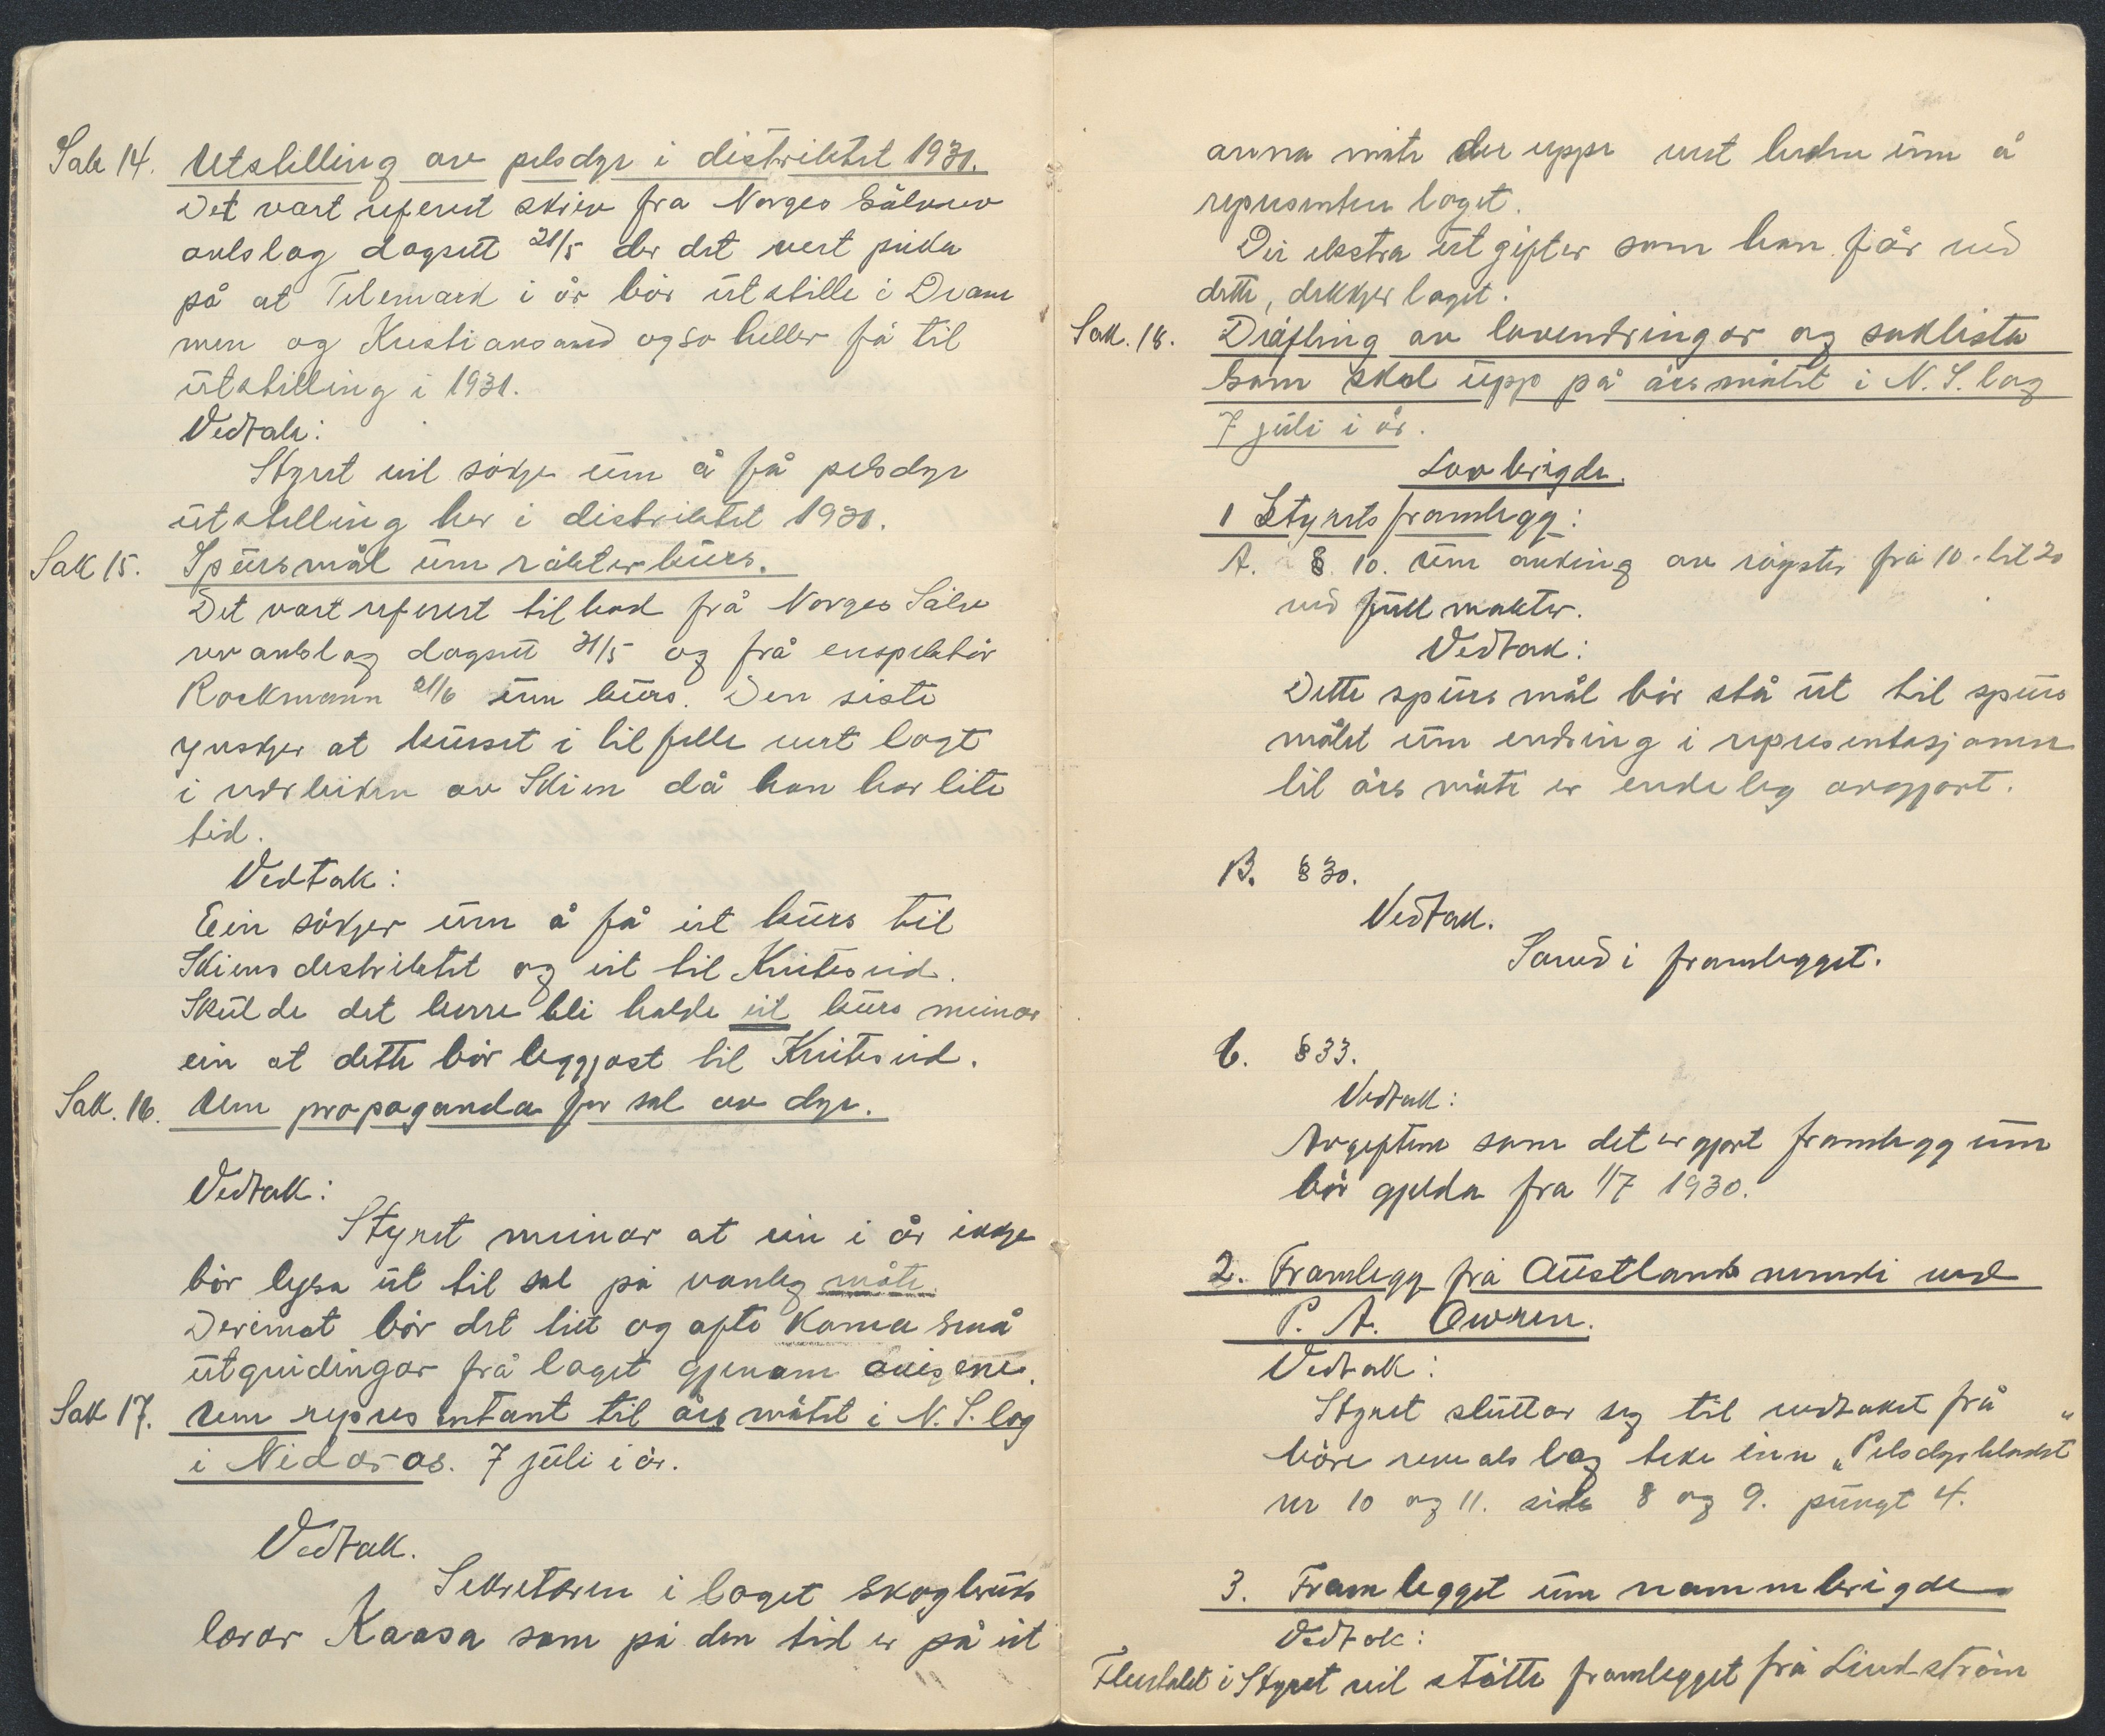 Sak 14. Utstilling av pelsdyr i distriktet 1931.
Det vart referert skriv fra Norges Sølvrev
avlslag dagsett 21/5 der det vert peika
på at Telemark i år bør utstille i Dram
men og Kristiansand og so heller få til
utstilling i 1931.
Vedtak:
Styret vil søkje um å få pelsdyr
utstilling her i distriktet 1931.
Sak 15. Spursmål um røkterkurs.
Det vart referert tilbod frå Norges Sølv
revavlslag dagsett 21/5 og frå enspektør
Rockmann 21/6 um kurs. Den siste
ynskjer at kurset i tilfelle vert lagt
i nærleiken av Skien då han har lite
tid.
Vedtak:
Ein søkjer um å få eit kurs til
Skiensdestriktet og eit til Kviteseid.
Skulde det berre bli halde eit kurs meinar
ein at dette bør leggjast til Kviteseid.
Sak. 16. Um propaganda for sal av dyr.
Vedtak:
Styret meinar at ein i år ikkje
bør lysa ut til sal på vanleg måte.
Derimot bør det titt og ofte koma små
utgreidingar frå laget gjenom avisene.
Sak 17. Um representant til årsmøtet i N. S. lag
i Nidaros. 7 juli i år.
Vedtak.
Sekretæren i laget skogbruks
lærar Kaasa som på den tid er på eit
anna møte der uppe vert beden um å
representere laget.
Dei ekstra utgifter som han får ved
dette, dekkjer laget.
Sak. 18. Drøfting av lovendringar og saklista
som skal upp på årsmøtet i N. S. lag
7 juli i år.
Lovbrigde.
1 Styrets framlegg:
A. § 10. Um auking av røyster frå 10 til 20
ved fullmakter.
Vedtak:
Dette spursmål bør stå ut til spurs
målet um endring i representasjonen
til årsmøte er endeleg avgjort.
B. § 30.
Vedtak.
Samd i framlegget.
C. § 33.
Vedtak:
Avgiften som det er gjort framlegg um
bør gjelda fra 1/7 1930.
2. Framlegg frå Austlandsnemndi ved
P. A. Owren.
Vedtak:
Styret sluttar seg til vedtaket frå
Børe reveals lag teke inn „Pelsdyrbladet"
nr 10 og 11. side 8 og 9. pungt 4.
3. Framlegget um nammbrigde
Vedtak:
Fleirtalet i Styret vil støtte framlegget frå Lindstrøm